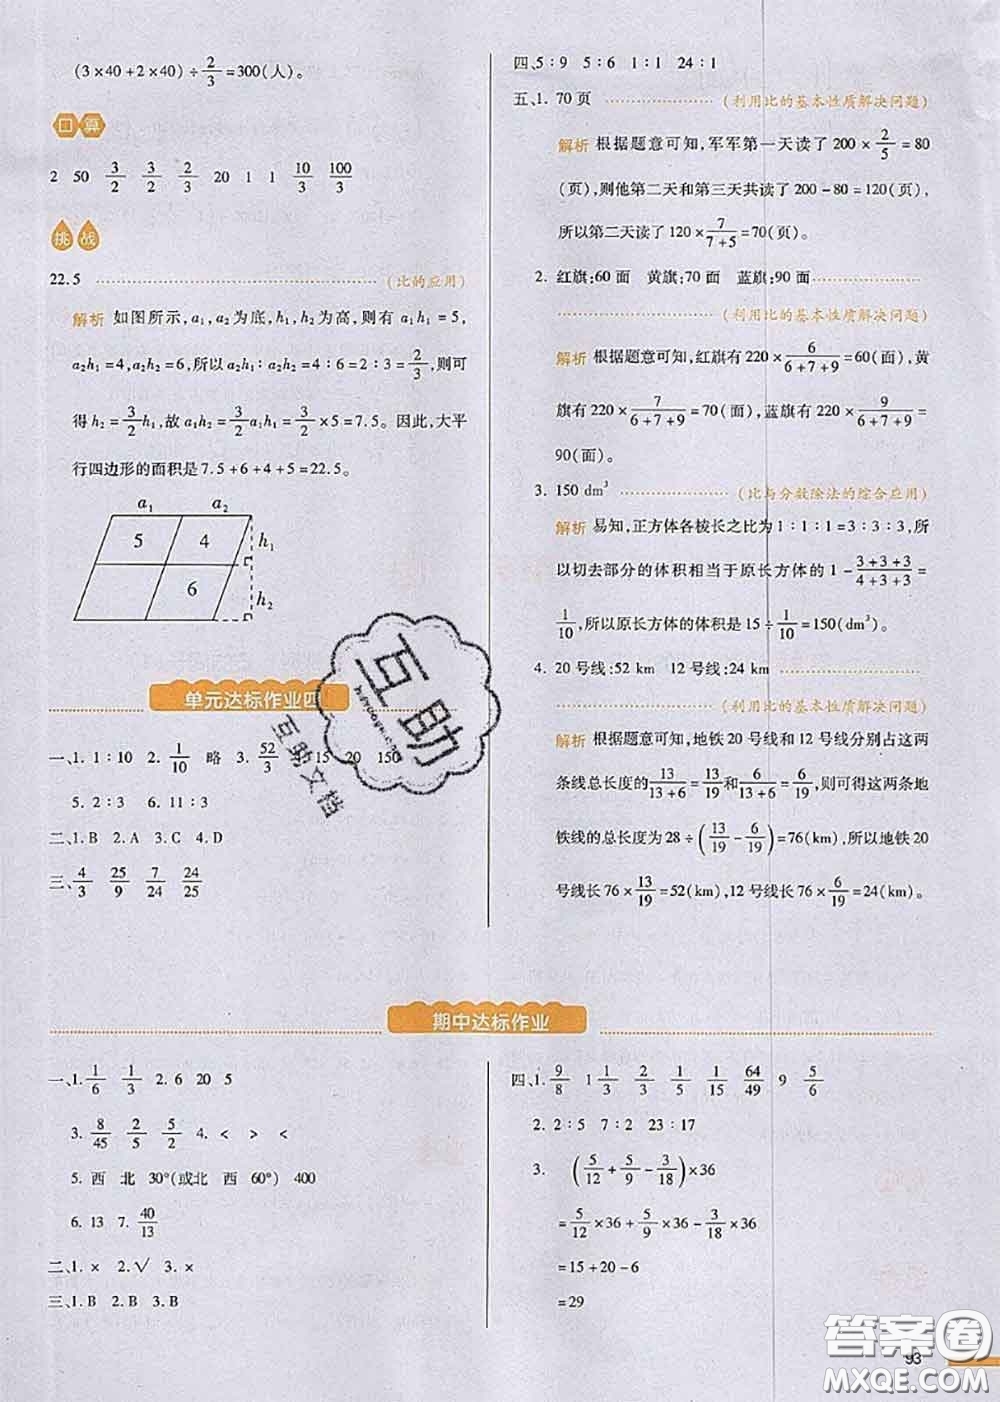 (3×40+2×40)÷2/3=300(人)。
口算
2 50 3/2 3/2 2/3 20 1 1 10/3 100/3
挑战
22.5 (比的应用)
解析 如图所示,a₁,a₂为底,h₁,h₂为高,则有a₁h₁=5,
a₂h₁=4,a₂h₂=6,所以a₂h₁∶a₂h₂=4∶6=2∶3=2/3,则可
得h₂=3/2h₁,故a₁h₂=3/2a₁h₁=3/2×5=7.5。因此,大平
行四边形的面积是7.5+6+4+5=22.5。
a₁ a₂
5 4 h₁
6 h₂
单元达标作业四
一、1. 1∶10 2. 1/10 略 3. 52/3 15 20 150
5. 2∶3 6. 11∶3
二、1. B 2. A 3. C 4. D
三、4/3 25/9 7/24 24/25
四、5∶9 5∶6 1∶1 24∶1
五、1. 70页 (利用比的基本性质解决问题)
解析 根据题意可知,军军第一天读了200×2/5=80
(页),则他第二天和第三天共读了200-80=120(页),
所以第二天读了120×7/(7+5)=70(页)。
2. 红旗:60面 黄旗:70面 蓝旗:90面
(利用比的基本性质解决问题)
解析 根据题意可知,红旗有220×6/(6+7+9)=60(面),黄
旗有220×7/(6+7+9)=70(面),蓝旗有220×9/(6+7+9)=
90(面)。
3. 150 dm³ (比与分数除法的综合应用)
解析 易知,正方体各棱长之比为1∶1∶1=3∶3∶3,所
以切去部分的体积相当于原长方体的1-(3+3+3)/(4+3+3)=
1/10,所以原长方体的体积是15÷1/10=150(dm³)。
4. 20号线:52 km 12号线:24 km
(利用比的基本性质解决问题)
解析 根据题意可知,地铁20号线和12号线分别占这两
条线总长度的13/(13+6)=13/19和6/(13+6)=6/19,则可得这两条地
铁线的总长度为28÷(13/19-6/19)=76(km),所以地铁20
号线长76×13/19=52(km),12号线长76×6/19=24(km)。
期中达标作业
一、1. 1/6 1/3 2. 6 20 5
3. 8/45 2/5 5/2 4. < > <
5. 西 北 30°(或北 西 60°) 400
6. 13 7. 40/13
二、1. × 2. √ 3. ×
三、1. B 2. B 3. B
四、1. 9/8 1 1/3 2/3 1/5 1/15 64/49 9 5/6
2. 2∶5 7∶2 23∶17
3. (5/12+5/9-3/18)×36
=5/12×36+5/9×36-3/18×36
=15+20-6
=29
93
互助
互助文档
答案圈
MXQE.COM